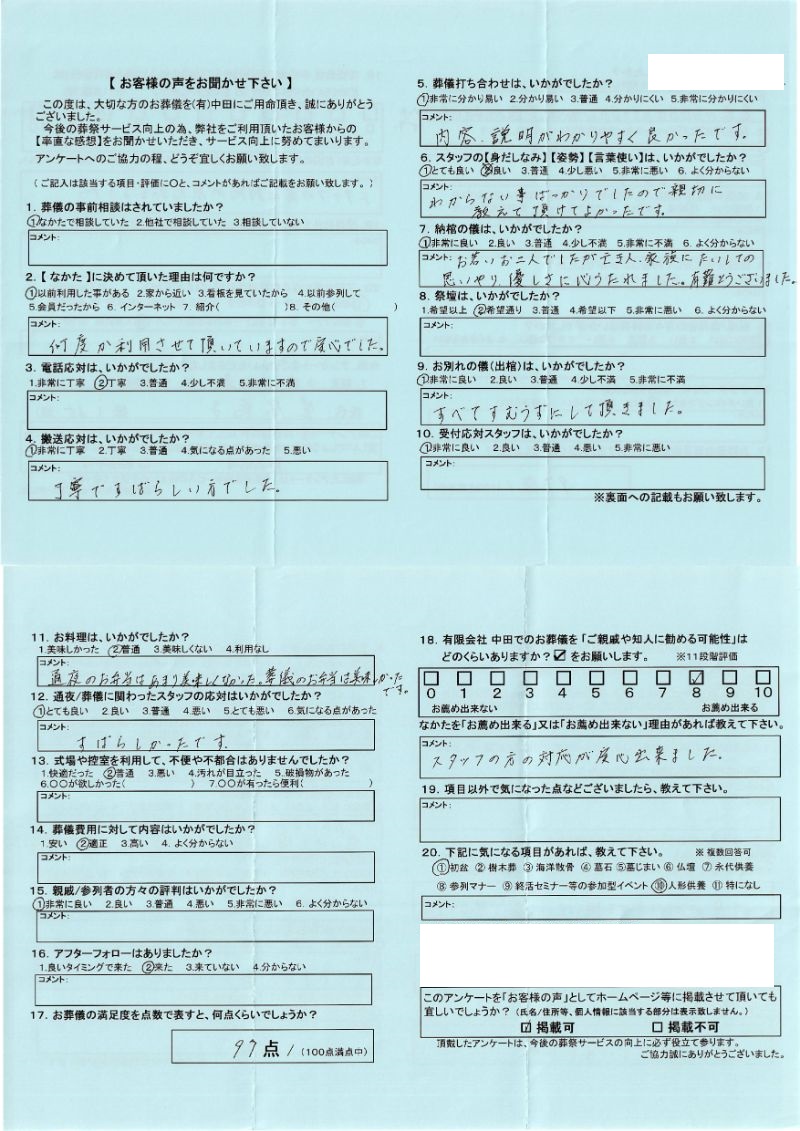 【 お客様の声をお聞かせ下さい 】
この度は、大切な方のお葬儀を(有)中田にご用命頂き、誠にありがとう
ございました。
今後の葬祭サービス向上の為、弊社をご利用頂いたお客様からの
【率直な感想】をお聞かせいただき、サービス向上に努めてまいります。
アンケートへのご協力の程、どうぞ宜しくお願い致します。
( ご記入は該当する項目・評価に○と、コメントがあればご記載をお願い致します。 )
1. 葬儀の事前相談はされていましたか?
①なかたで相談していた 2.他社で相談していた 3.相談していない
コメント:
2. 【 なかた 】に決めて頂いた理由は何ですか?
①以前利用した事がある 2.家から近い 3.看板を見ていたから 4.以前参列して
5.会員だったから 6. インターネット 7. 紹介( )8. その他( )
コメント:
何度か利用させて頂いていますので安心でした。
3. 電話応対は、いかがでしたか?
1.非常に丁寧 ②丁寧 3.普通 4.少し不満 5.非常に不満
コメント:
4. 搬送応対は、いかがでしたか?
①非常に丁寧 2.丁寧 3.普通 4.気になる点があった 5.悪い
コメント:
丁寧ですばらしい方でした。
5. 葬儀打ち合わせは、いかがでしたか?
①非常に分かり易い 2.分かり易い 3.普通 4.分かりにくい 5.非常に分かりにくい
コメント:
内容、説明がわかりやすく良かったです。
6. スタッフの【身だしなみ】【姿勢】【言葉使い】は、いかがでしたか?
①とても良い ②良い 3.普通 4.少し悪い 5.非常に悪い 6. よく分からない
コメント:
わからない事ばっかりでしたので親切に
教えて頂けてよかったです。
7. 納棺の儀は、いかがでしたか?
①非常に良い 2.良い 3.普通 4.少し不満 5.非常に不満 6. よく分からない
コメント: お若いお二人でしたが亡き人、家族にたいしての
思いやり、優しさに心うたれました。有難とうございました。
8. 祭壇は、いかがでしたか?
1.希望以上 ②希望通り 3.普通 4.希望以下 5.非常に悪い 6. よく分からない
コメント:
9. お別れの儀(出棺)は、いかがでしたか?
①非常に良い 2.良い 3.普通 4.少し不満 5.非常に不満
コメント:
すべてすむうずにして頂きました。
10. 受付応対スタッフは、いかがでしたか?
①非常に良い 2.良い 3.普通 4.悪い 5.非常に悪い
コメント:
※裏面への記載もお願い致します。
11. お料理は、いかがでしたか?
1.美味しかった ②普通 3.美味しくない 4.利用なし
コメント:
通夜のお弁当はあまり美味しくなかった。葬儀のお弁当は美味しかった
です。
12. 通夜/葬儀に関わったスタッフの応対はいかがでしたか?
①とても良い 2.良い 3.普通 4.悪い 5.とても悪い 6.気になる点があった
コメント:
すばらしかったです。
13. 式場や控室を利用して、不便や不都合はありませんでしたか?
1.快適だった ②普通 3.悪い 4.汚れが目立った 5.破損物があった
6.〇〇が欲しかった( ) 7.〇〇が有ったら便利( )
コメント:
14. 葬儀費用に対して内容はいかがでしたか?
1.安い ②適正 3.高い 4. よく分からない
コメント:
15. 親戚/参列者の方々の評判はいかがでしたか?
①非常に良い 2.良い 3.普通 4.悪い 5.非常に悪い 6. よく分からない
コメント:
16. アフターフォローはありましたか?
1.良いタイミングで来た ②来た 3.来ていない 4.分からない
コメント:
17. お葬儀の満足度を点数で表すと、何点くらいでしょうか?
97点 / (100点満点中)
18. 有限会社 中田でのお葬儀を「ご親戚や知人に勧める可能性」は
どのくらいありますか?☑をお願いします。 ※11段階評価
□ □ □ □ □ □ □ □ ☑ □ □
0 1 2 3 4 5 6 7 8 9 10
お薦め出来ない お薦め出来る
なかたを「お薦め出来る」又は「お薦め出来ない」理由があれば教えて下さい。
コメント:
スタッフの方の対応が安心出来ました。
19. 項目以外で気になった点などございましたら、教えて下さい。
コメント:
20. 下記に気になる項目があれば、教えて下さい。 ※ 複数回答可
①初盆 ② 樹木葬 ③ 海洋散骨 ④ 墓石 ⑤墓じまい ⑥ 仏壇 ⑦ 永代供養
⑧ 参列マナー ⑨ 終活セミナー等の参加型イベント ⑩人形供養 ⑪ 特になし
コメント:
このアンケートを「お客様の声」としてホームページ等に掲載させて頂いても
宜しいでしょうか? (氏名/住所等、個人情報に該当する部分は表示致しません。)
☑ 掲載可 □ 掲載不可
頂戴したアンケートは、今後の葬祭サービスの向上に必ず役立て参ります。
ご協力誠にありがとうございました。